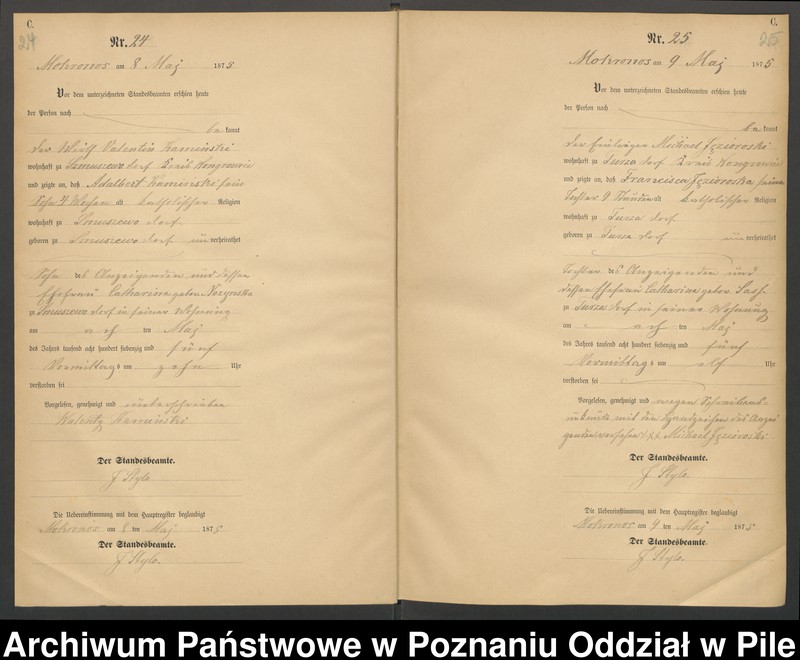 C.
24
Nr. 24
Mokronos am 8 Maj 1875
Vor dem unterzeichneten Standesbeamten erschien heute
der Person nach
be kannt
der Wirth Valentin Kaminski
wohnhaft zu Smuszewo dorf Kreis Wongrowiec
und zeigte an, daß Adalbert Kaminski sein
Sohn 4 Wochen alt katholischer Religion
wohnhaft zu Smuszewo dorf
geboren zu Smuszewo dorf un verheirathet
Sohn des Anzeigenden und dessen
Ehefrau Catharina geboren
zu Smuszewo dorf in seiner Wohnung
am acht ten Maj
des Jahrs tausend acht hundert siebenzig und fünf
Vormittags um zehn Uhr
verstorben sei
Vorgelesen, genehmigt und unterschrieben
Walenty Kaminski
Der Standesbeamte.
J Stylo.
Die Uebereinstimmung mit dem Hauptregister beglaubigt
Mokronos am 8 ten Maj 1875
Der Standesbeamte.
J Stylo.
C.
25
Nr. 25
Mokronos am 9 Maj 1875
Vor dem unterzeichneten Standesbeamten erschien heute
der Person nach
be kannt
der Michael Jezioroski
wohnhaft zu Turza dorf Kreis Wongrowiec
und zeigte an, daß Francisca Jezioroska seine
Tochter 9 alt katholischer Religion
wohnhaft zu Turza dorf
geboren zu Turza dorf un verheirathet
Tochter des Anzeigenden und
dessen Ehefrau Catharina gebor.
zu Turza dorf in seiner Wohnung
am acht ten Maj
des Jahrs tausend acht hundert siebenzig und fünf
Vormittags um elf Uhr
verstorben sei
Vorgelesen, genehmigt und wegen Schreibens
unkunde mit den Handzeichen des Anzei
genden versehen XXX Michael Jezioroski
Der Standesbeamte.
J Stylo.
Die Uebereinstimmung mit dem Hauptregister beglaubigt
Mokronos am 9 ten Maj 1875
Der Standesbeamte.
J Stylo.
Archiwum Państwowe w Poznaniu Oddział w Pile